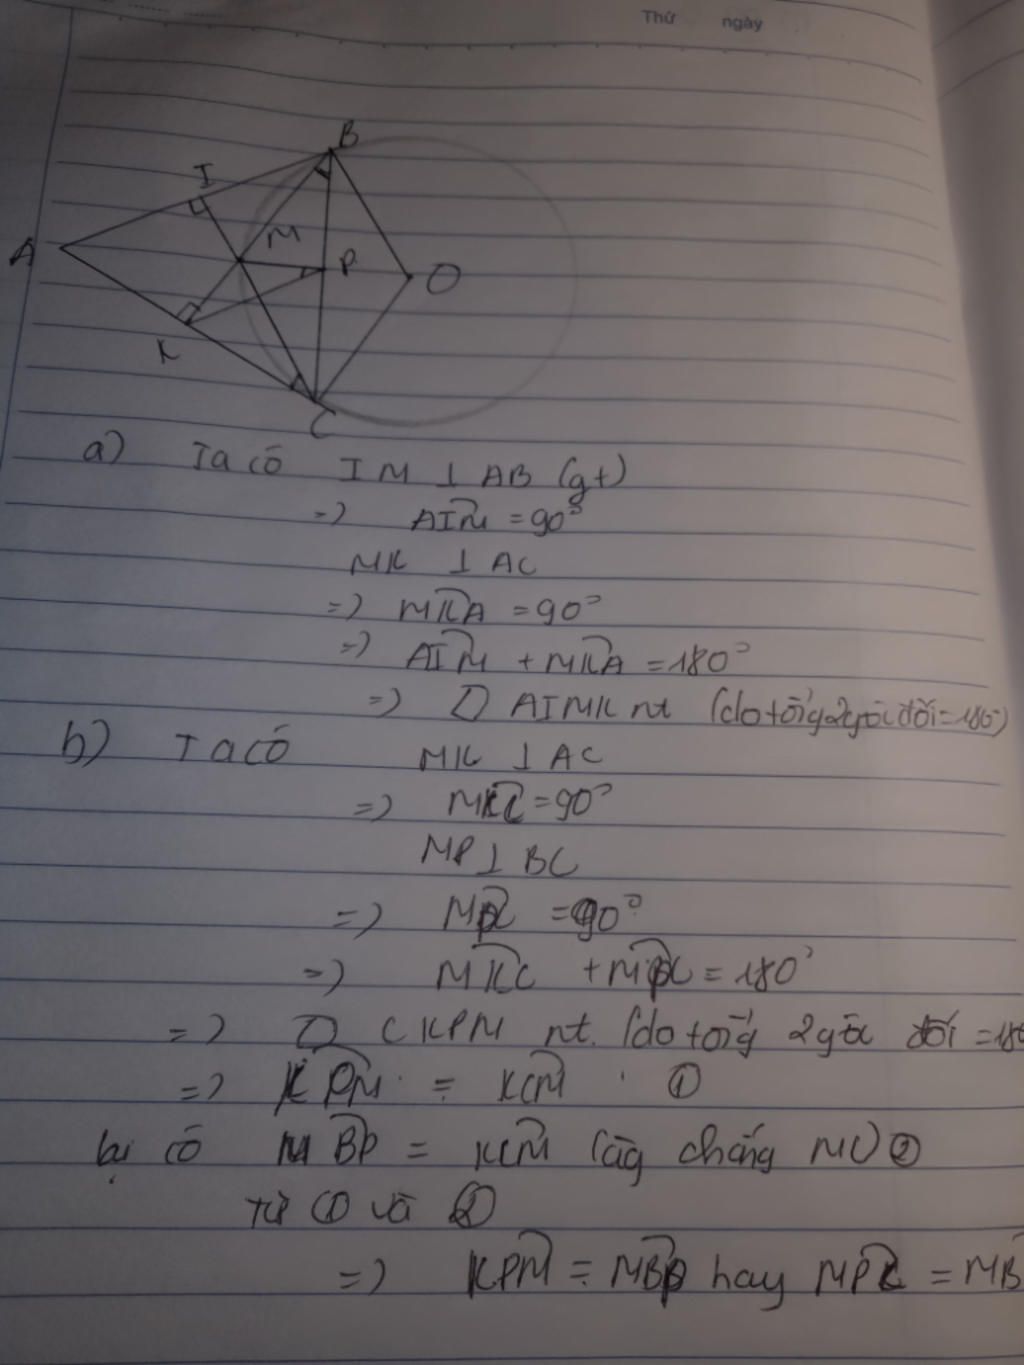 Thứ ngày
B
I
A
M
P
O
K
C
a) Ta có IM ⊥ AB (gt)
=> AIM = 90°
MK ⊥ AC
=> MKA = 90°
=> AIM + MKA = 180°
=> AIMK nt (do tổng 2 góc đối = 180°)
b) Ta có MK ⊥ AC
=> MKC = 90°
MP ⊥ BC
=> MPC = 90°
=> MKC + MPC = 180°
=> CKPM nt. (do tổng 2 góc đối = 180
=> KPM = KCM ①
lại có MBP = KCM (cùng chắng MC) ②
từ ① và ②
=> KPM = MBP hay MPK = MB